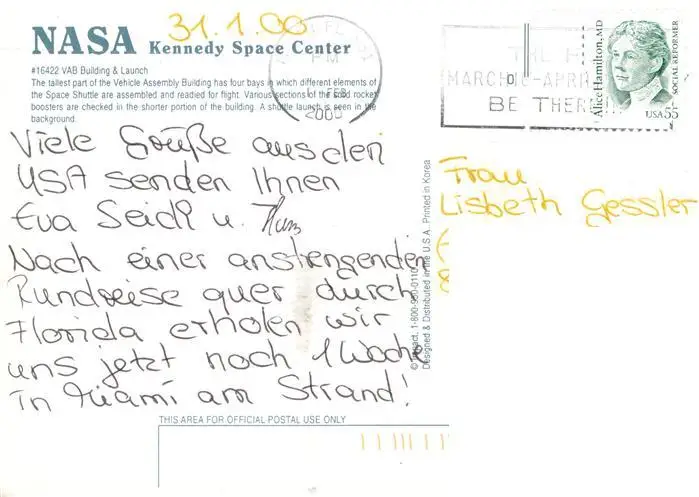 31.1.00
NASA Kennedy Space Center
#16422 VAB Building & Launch
The tallest part of the Vehicle Assembly Building has four bays in which different elements of
the Space Shuttle are assembled and readied for flight. Various sections of the solid rocket
boosters are checked in the shorter portion of the building. A shuttle launch is seen in the
background.
PM
FEB
2000
THE
MARCH APRIL
BE THERE
Alice Hamilton, MD
SOCIAL REFORMER
USA 55
Viele Grüße aus den
USA senden Ihnen
Eva Seidl u.
Nach einer anstrengenden
Rundreise quer durch
Florida erholen wir
uns jetzt noch 1 Woche
in Miami am Strand!
Frau
Lisbeth Gessler
Designed & Distributed in the U.S.A. Printed in Korea
THIS AREA FOR OFFICIAL POSTAL USE ONLY